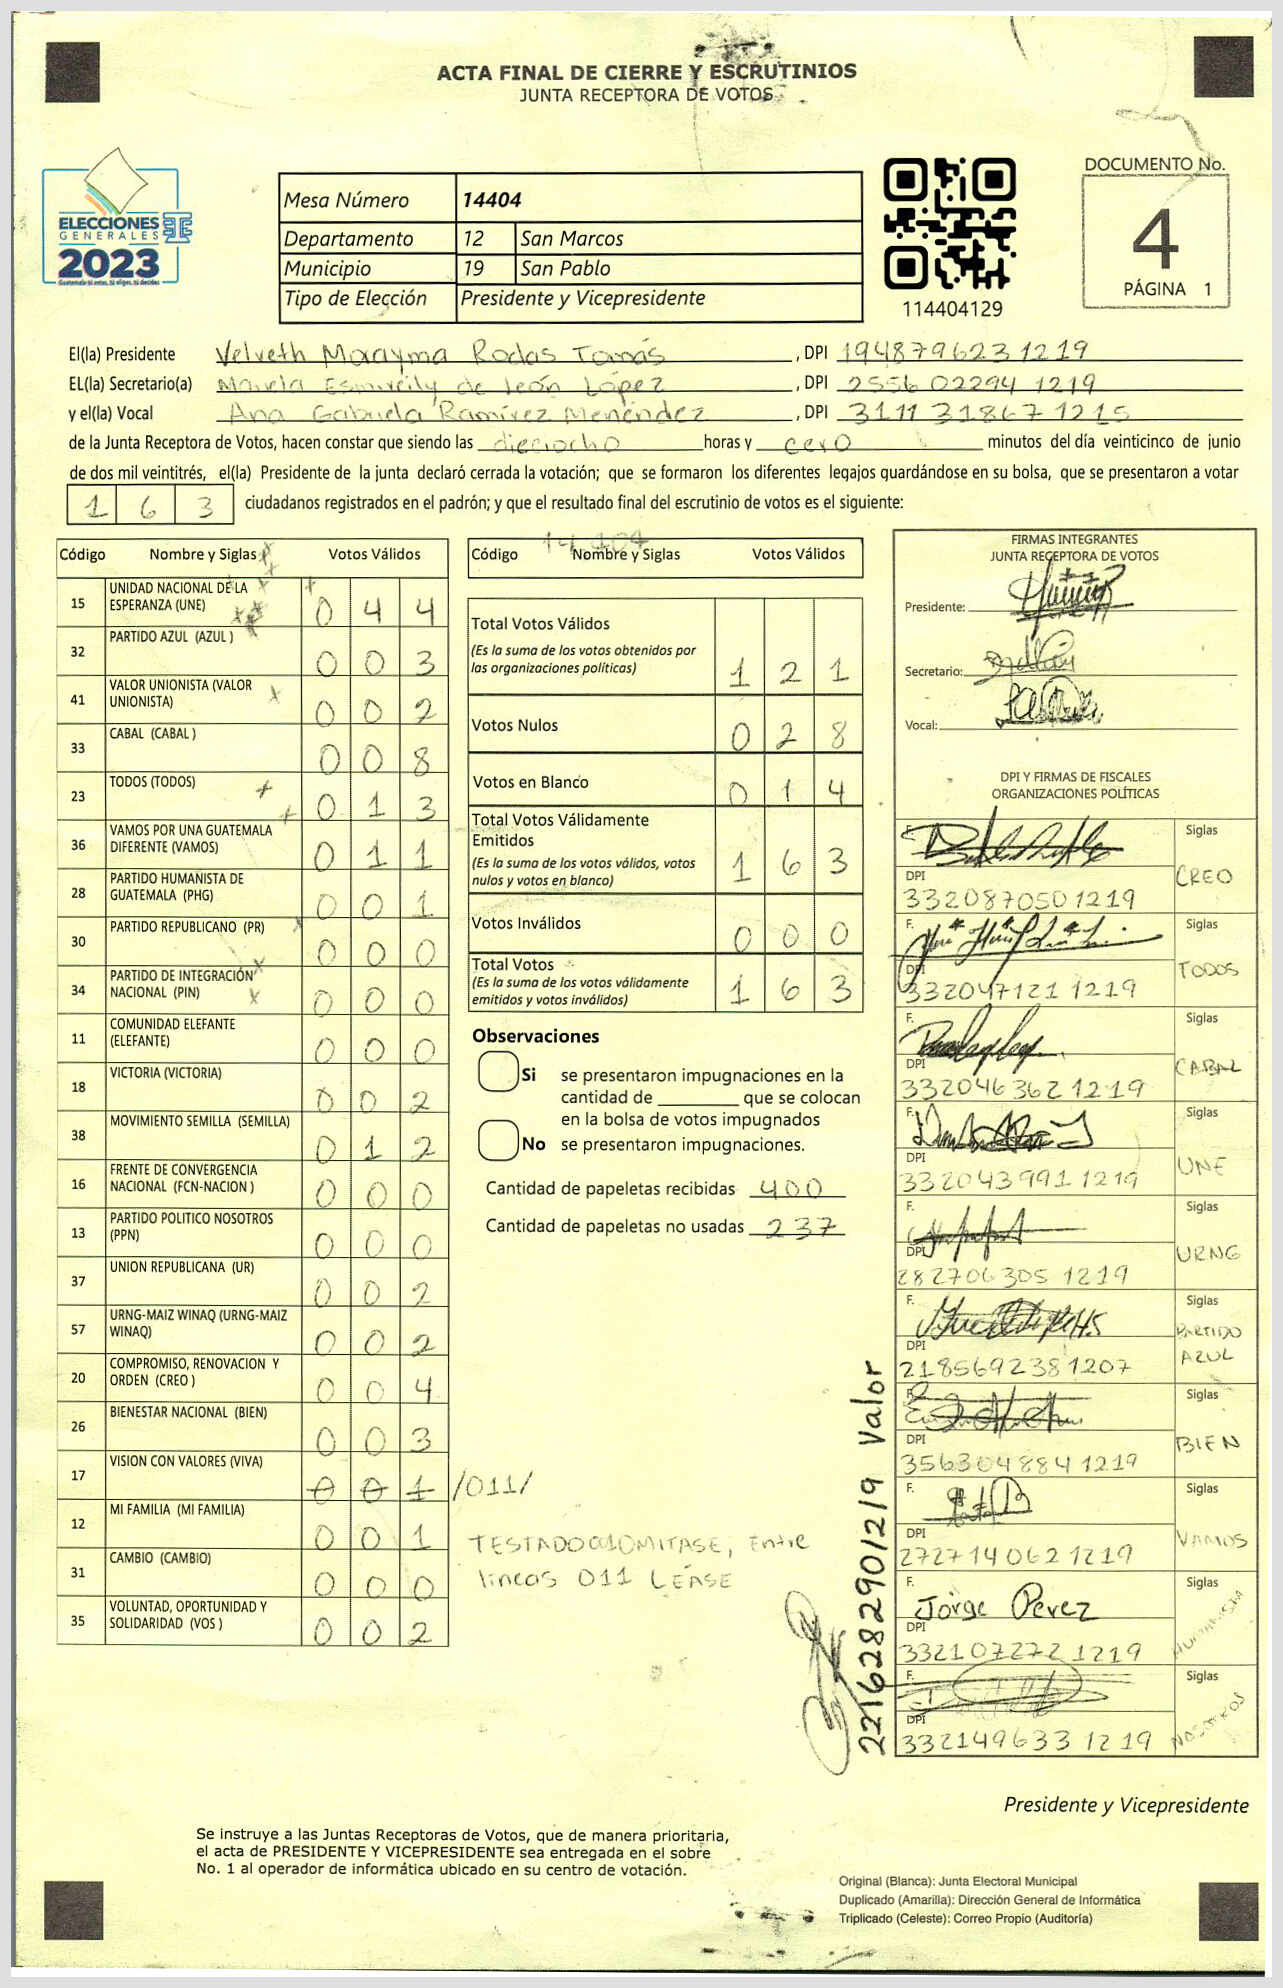 ACTA FINAL DE CIERRE Y ESCRUTINIOS
JUNTA RECEPTORA DE VOTOS
ELECCIONES
GENERALES
2023
Mesa Número 14404
Departamento 12 San Marcos
Municipio 19 San Pablo
Tipo de Elección Presidente y Vicepresidente
114404129
DOCUMENTO No.
4
PÁGINA 1
El(la) Presidente Velveth Morayma Rodas Tomás, DPI 1948796231219
EL(la) Secretario(a) de León López, DPI 2556 02294 1219
y el(la) Vocal Ana Gabriela Ramírez Menéndez, DPI 3111 31867 1215
de la Junta Receptora de Votos, hacen constar que siendo las dieciocho horas y cero minutos del día veinticinco de junio
de dos mil veintitrés, el(la) Presidente de la junta declaró cerrada la votación; que se formaron los diferentes legajos guardándose en su bolsa, que se presentaron a votar
1 6 3 ciudadanos registrados en el padrón; y que el resultado final del escrutinio de votos es el siguiente:
Código Nombre y Siglas Votos Válidos
15 UNIDAD NACIONAL DE LA ESPERANZA (UNE) 0 4 4
32 PARTIDO AZUL (AZUL ) 0 0 3
41 VALOR UNIONISTA (VALOR UNIONISTA) 0 0 2
33 CABAL (CABAL ) 0 0 8
23 TODOS (TODOS) 0 1 3
36 VAMOS POR UNA GUATEMALA DIFERENTE (VAMOS) 0 1 1
28 PARTIDO HUMANISTA DE GUATEMALA (PHG) 0 0 1
30 PARTIDO REPUBLICANO (PR) 0 0 0
34 PARTIDO DE INTEGRACIÓN NACIONAL (PIN) 0 0 0
11 COMUNIDAD ELEFANTE (ELEFANTE) 0 0 0
18 VICTORIA (VICTORIA) 0 0 2
38 MOVIMIENTO SEMILLA (SEMILLA) 0 1 2
16 FRENTE DE CONVERGENCIA NACIONAL (FCN-NACION ) 0 0 0
13 PARTIDO POLITICO NOSOTROS (PPN) 0 0 0
37 UNION REPUBLICANA (UR) 0 0 2
57 URNG-MAIZ WINAQ (URNG-MAIZ WINAQ) 0 0 2
20 COMPROMISO, RENOVACION Y ORDEN (CREO ) 0 0 4
26 BIENESTAR NACIONAL (BIEN) 0 0 3
17 VISION CON VALORES (VIVA) 0 0 1 /011/
12 MI FAMILIA (MI FAMILIA) 0 0 1
31 CAMBIO (CAMBIO) 0 0 0
35 VOLUNTAD, OPORTUNIDAD Y SOLIDARIDAD (VOS ) 0 0 2
14404
Código Nombre y Siglas Votos Válidos
Total Votos Válidos 1 2 1
(Es la suma de los votos obtenidos por
las organizaciones políticas)
Votos Nulos 0 2 8
Votos en Blanco 0 1 4
Total Votos Válidamente
Emitidos 1 6 3
(Es la suma de los votos válidos, votos
nulos y votos en blanco)
Votos Inválidos 0 0 0
Total Votos 1 6 3
(Es la suma de los votos válidamente
emitidos y votos inválidos)
Observaciones
Si se presentaron impugnaciones en la
cantidad de ________ que se colocan
en la bolsa de votos impugnados
No se presentaron impugnaciones.
Cantidad de papeletas recibidas 400
Cantidad de papeletas no usadas 237
TESTADO 001 OMITASE, Entre
lineas 011 LÉASE
FIRMAS INTEGRANTES
JUNTA RECEPTORA DE VOTOS
Presidente:
Secretario:
Vocal:
DPI Y FIRMAS DE FISCALES
ORGANIZACIONES POLÍTICAS
F. Siglas
DPI CREO
332087050 1219
F. Siglas
DPI TODOS
332047121 1219
F. Siglas
DPI CABAL
332046362 1219
F. Siglas
DPI UNE
332043991 1219
F. Siglas
DPI URNG
282706305 1219
F. Siglas
DPI PARTIDO AZUL
218569238 1207
F. Siglas
DPI BIEN
356304884 1219
F. Siglas
DPI VAMOS
272714062 1219
F. Jorge Perez Siglas
DPI HUMANISTA
332107272 1219
F. Siglas
DPI NOSOTROS
332149633 1219
2216282901219 Valor
Presidente y Vicepresidente
Se instruye a las Juntas Receptoras de Votos, que de manera prioritaria,
el acta de PRESIDENTE Y VICEPRESIDENTE sea entregada en el sobre
No. 1 al operador de informática ubicado en su centro de votación.
Original (Blanca): Junta Electoral Municipal
Duplicado (Amarilla): Dirección General de Informática
Triplicado (Celeste): Correo Propio (Auditoría)